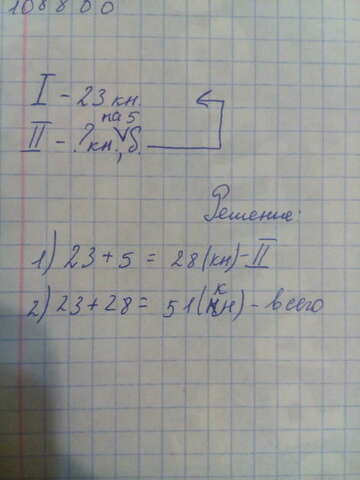 108800
I - 23 кн.
на 5
II - ? кн., б.
Решение:
1) 23 + 5 = 28 (кн) - II
2) 23 + 28 = 51 (кн) - всего